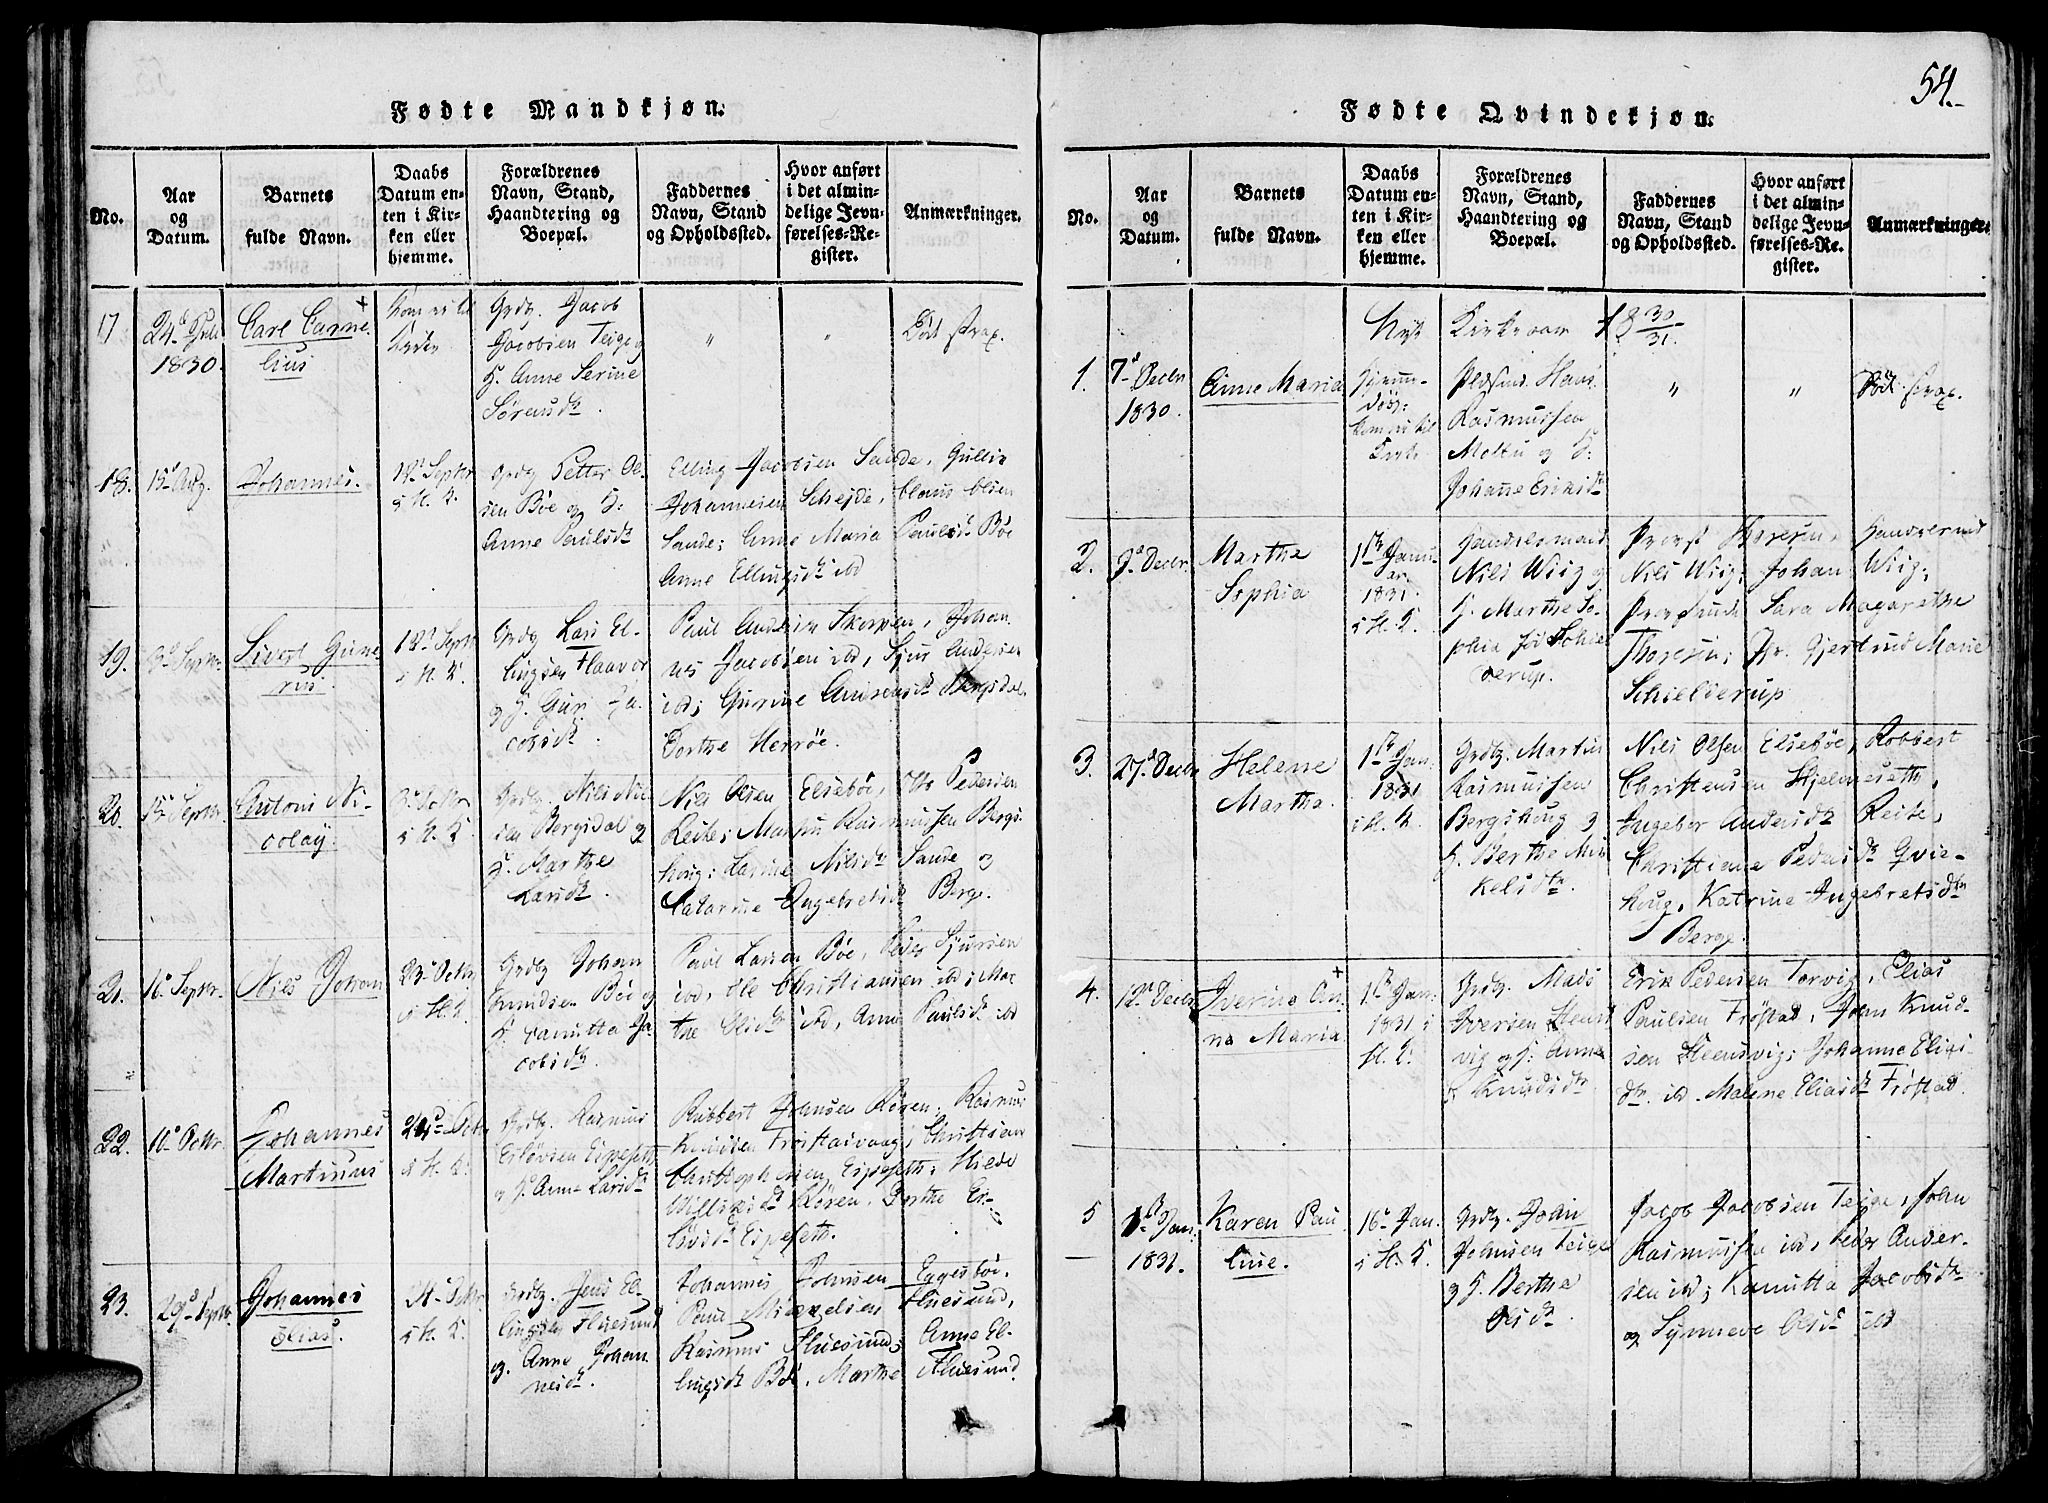 54.
Fødte Mandkjøn.
No.
Aar
og
Datum.
Barnets
fulde Navn.
Daabs
Datum en-
ten i Kir-
ken eller
hjemme.
Forældrenes
Navn, Stand,
Haandtering og
Boepæl.
Faddernes
Navn, Stand
og Opholdssted.
Hvor anført
i det almin-
delige Jevn-
førelses-Re-
gister.
Anmærkninger.
17
24de Juli
1830.
Carl Corne-
lius
Kom ei til
Kirken
Grdbr. Jacob
Jacobsen Teige og
H. Anne Serine
Sørensdr.
"
"
Død strax.
18.
15de Aug.
Johannes.
12te Septbr.
i H. K.
Grdbr. Petter Ol-
sen Bøe og H:
Anne Paulsdr
Elling Jacobsen Sande, Gullik
Johannesen Schejde, Claus Olsen
Sande; Anne Maria Paulsdr Bøe
Anne Ellingsdr ibd
19.
Septbr.
Sivert Gune-
rius.
12te Septbr
i H. K.
Grdbr. Lars El-
lingsen Flaavær
og H. Guri Ja-
cobsdr.
Paul Andersen Skorpen, Johan-
nes Jacobsen ibd, Sjur Andersen
ibd; Gurine Bergsdal
Dorthe Herrøe.
20.
15de Septbr.
Antoni Ni-
colay.
3de Octbr.
i H. K.
Grdbr. Nils Nil-
sen Bergsdal og
H. Marthe
Larsdr.
Nils Olsen Elsebøe, Ole Pedersen
Reite; Martin Rasmussen Bergs-
houg; Karine Nilsdr Sande og
Catarine Ingebretsdr Berge.
21.
16de Septbr.
Nils Johan
23de Octbr.
i H. K.
Grdbr. Johan
Knudsen Bøe og
H. Kanutta Ja-
cobsdr.
Paul Larsen Bøe, Peder Sjursen
ibd, Ole Christiansen ibd; Mar-
the Olsdr ibd, Anne Paulsdr ibd
22.
10de Octbr.
Johannes
Martinus
24de Octbr
i H. K.
Grdbr. Rasmus
Eliasen Espeseth
og H. Anne Larsdr
Rubbert Johnsen Røren; Rasmus
Knudsen Frøstadvaag; Christian
Christophersen Espeseth; Hilde
Willumsdr Røren. Berthe
Espeseth.
23.
29de Septbr.
Johannes
Elias.
24de Octbr.
i H. K.
Grdbr. Jens El-
lingsen Fluesund
og Anne Johan-
nesdr.
Johannes Johnsen Eggesbøe,
Paul Mickelsen Fluesund,
Rasmus Fluesund; Anne El-
lingsdr Bøe, Marthe Fluesund.
Fødte Qvindekjøn.
No.
Aar
og
Datum.
Barnets
fulde Navn.
Daabs
Datum en-
ten i Kir-
ken eller
hjemme.
Forældrenes
Navn, Stand,
Haandtering og
Boepæl.
Faddernes
Navn, Stand
og Opholdssted.
Hvor anført
i det almin-
delige Jevn-
førelses-Re-
gister.
Anmærkninger.
Nyt Kirkeaar 18 30/31
1.
7de Decbr
1830.
Anne Maria
Hjemme-
døbt;
kom ei til
Kirke
Pldsmd. Hans
Rasmussen
Moltu og H:
Johanne Eriksdr
"
"
Død strax.
2.
9de Decbr.
Marthe
Sophia
1ste Janu-
ar
1831.
i H. K.
Handelsmand
Nils Wiig og
H. Marthe So-
phia fød Schiel-
derup.
Provst Thoresen, Handelsmd
Nils Wiig; Johan Wiig;
Provstinde Sara Magarethe
Thoresen; Jfr. Gjertrud Marie
Schielderup
3.
27de Decbr
Helene
Martha.
1ste Jan:
1831
i H. K.
Grdbr. Martin
Rasmussen
Bergshoug og
H. Berthe Mi-
kelsdtr.
Nils Olsen Elsebøe, Robbert
Christensen Hjelmeseth,
Ingebor Andersdr Reite,
Christiane Pedersdr Qvie-
houg, Katrine Ingebretsdtr
Berge.
4.
12te Decbr
Iverine An-
na Maria
1ste Jan:
1831 i
H. K.
Grdbr. Mads
Iversen Steens-
vig og H. Anne
Knudsdtr
Erik Pedersen Tarvig, Elias
Paulsen Frøstad, John Knud-
sen Steensvig; Johanne Elias-
dtr. ibd. Malene Eliasdr Frøstad
5
1ste Jan.
1831.
Karen Pau-
line.
16de Jan.
i H. K.
Grdbr. John
Johnsen Teige
og H. Berthe
Olsdr.
Jacob Jacobsen Teige, John
Rasmussen ibd, Peder Ander-
sen ibd; Kanutta Jacobsdtr
og Synneve Olsdr ibd